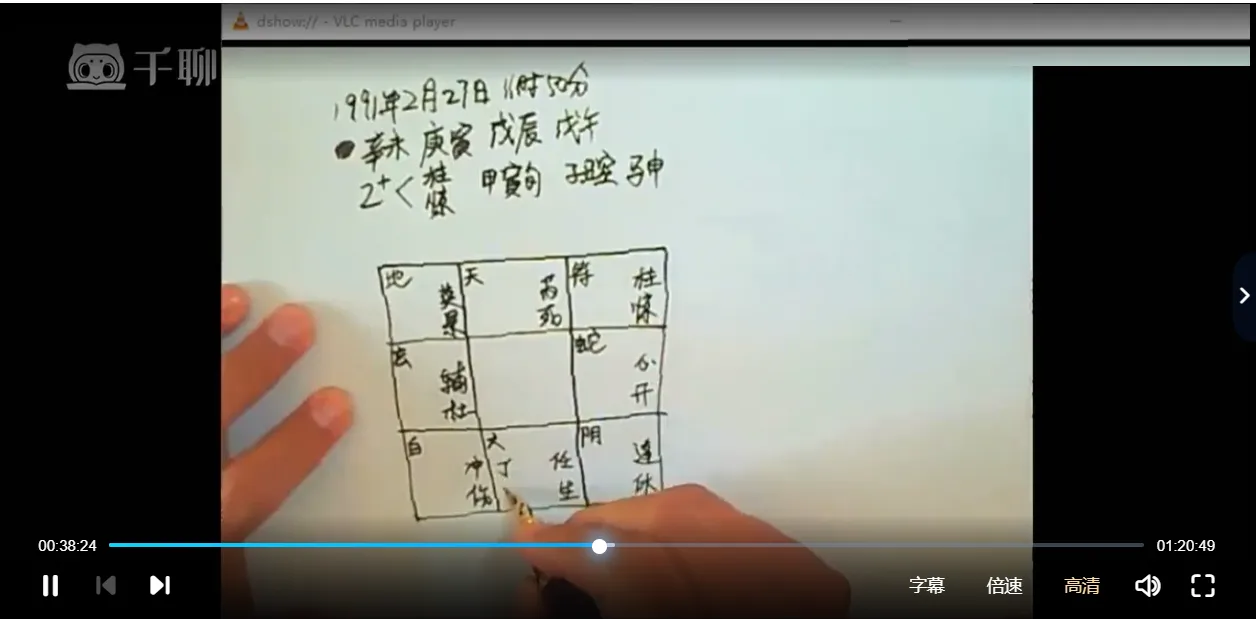 dshow:// - VLC media player
千聊
1991年2月27日 11时50分
辛未 庚寅 戊辰 戊午
2+< 柱
惊
甲寅旬 子丑空 马申
地 英
景
天 芮
死
符 柱
惊
玄 辅
杜
蛇 心
开
白 冲
伤
六
丁 任
生
阴 蓬
休
00:38:24
01:20:49
字幕 倍速 高清